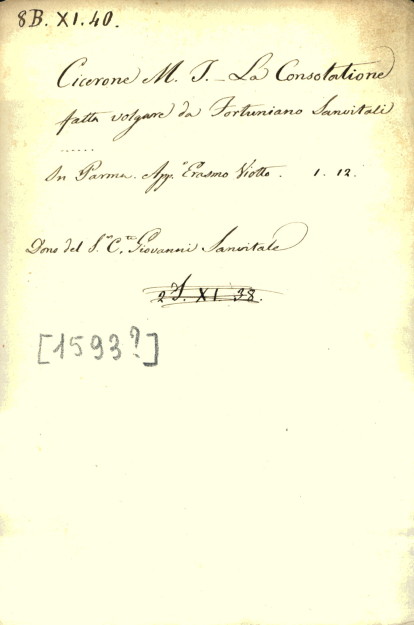 8B. XI. 40.
Cicerone M. T. - La Consolatione
fatta volgare da Fortuniano Sanvitali
......
In Parma. App.º Erasmo Viotto. 1. 12.
Dono del S.r C.te Giovanni Sanvitale
XI. 38.
[1593?]